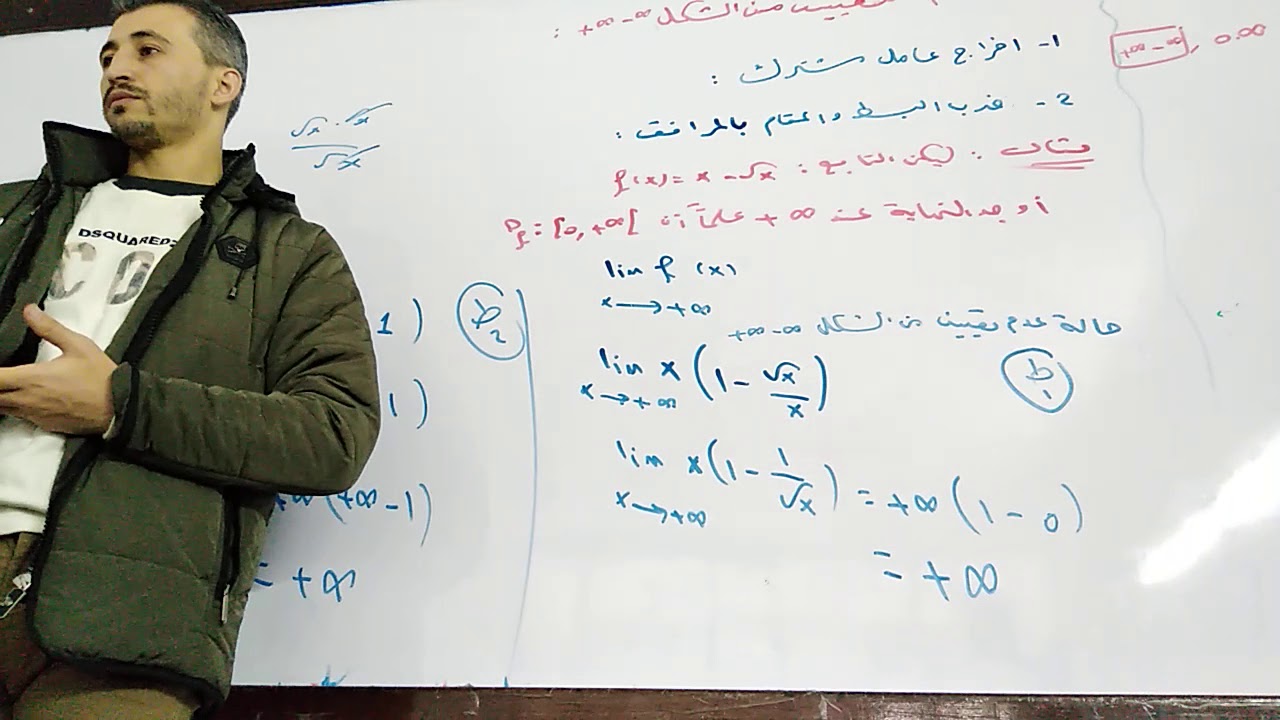 من الشكل +∞-∞ :
+∞-∞, 0.∞
1- اخراج عامل مشترك :
2- ضرب البسط والمقام بالمرافق :
مثال : ليكن التابع : f(x) = x - √x
أوجد النهاية عند +∞ علماً أن D_f : [0, +∞[
lim f(x)
x → +∞
حالة عدم تعيين من الشكل +∞-∞
ط1
lim x (1 - √x/x)
x → +∞
lim x (1 - 1/√x) = +∞ (1 - 0)
x → +∞
= +∞
√x . √x
√x
ط2
1 )
1 )
(+∞ - 1)
= +∞
DSQUARED2